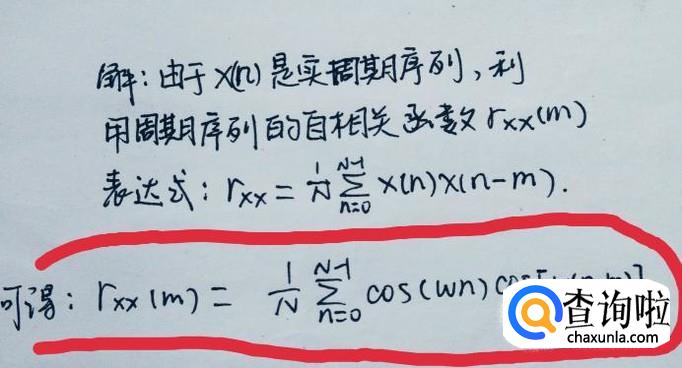 解：由于 x(n) 是实周期序列，利
用周期序列的自相关函数 rxx(m)
表达式：rxx = 1/N ∑_{n=0}^{N-1} x(n)x(n-m).
可得：rxx(m) = 1/N ∑_{n=0}^{N-1} cos(wn) cos[
查询啦
chaxunla.com